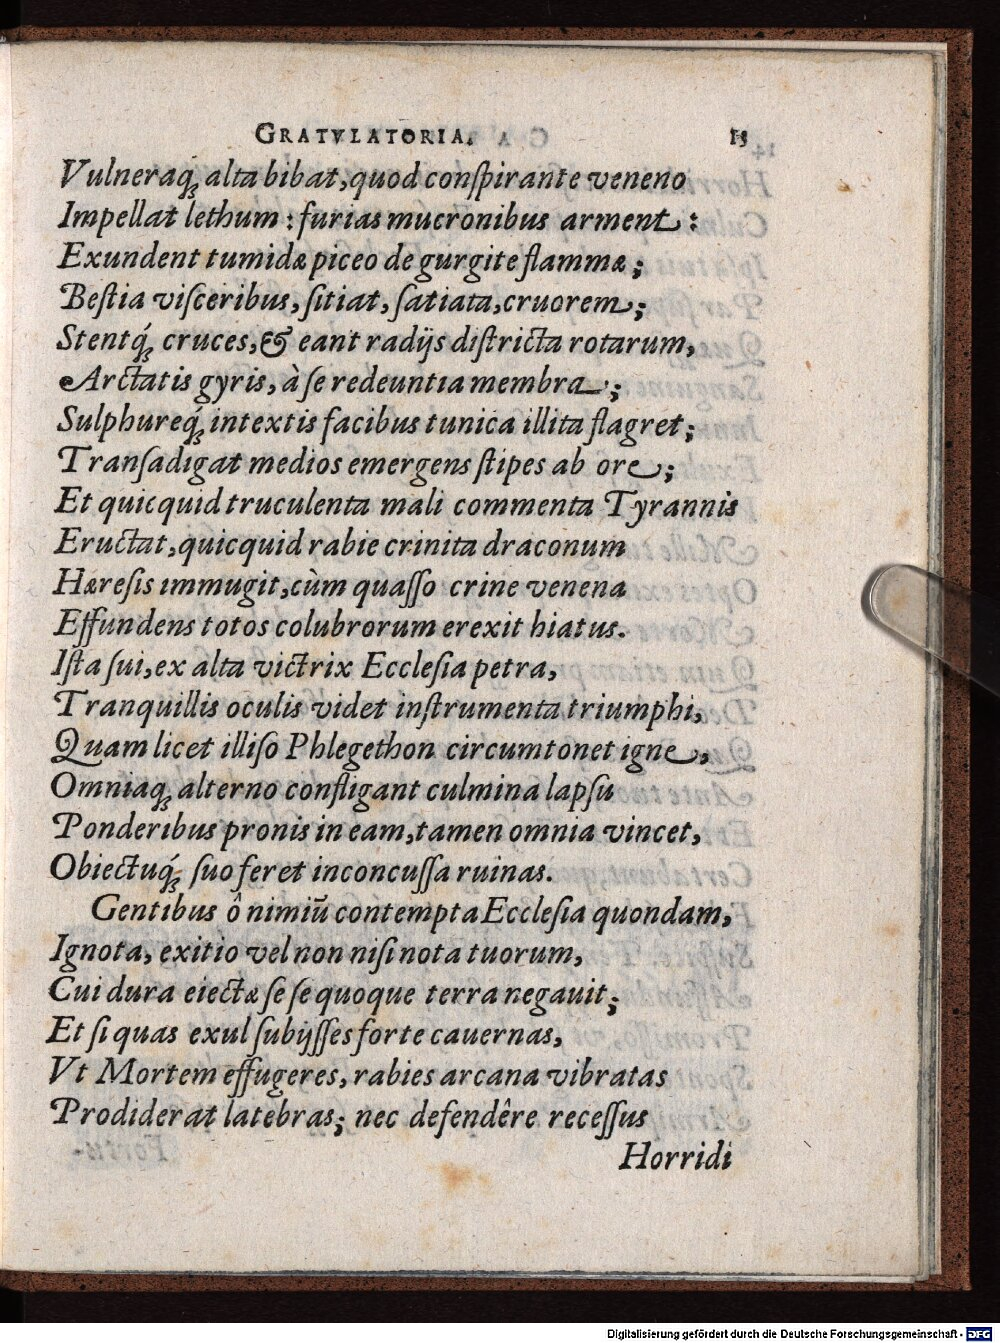 GRATVLATORIA. 15
Vulneraq́; alta bibat, quod conſpirante veneno
Impellat lethum: furias mucronibus arment:
Exundent tumidæ piceo de gurgite flammæ;
Beſtia viſceribus, ſitiat, ſatiata, cruorem;
Stentq́; cruces, & eant radijs diſtricta rotarum,
Arctatis gyris, à ſe redeuntia membra;
Sulphureq́; intextis facibus tunica illita flagret;
Tranſadigat medios emergens ſtipes ab ore;
Et quicquid truculenta mali commenta Tyrannis
Eructat, quicquid rabie crinita draconum
Hæreſis immugit, cùm quaſſo crine venena
Effundens totos colubrorum erexit hiatus.
Iſta ſui, ex alta victrix Eccleſia petra,
Tranquillis oculis videt inſtrumenta triumphi,
Quam licet illiſo Phlegethon circumtonet igne,
Omniaq; alterno confligant culmina lapſu
Ponderibus pronis in eam, tamen omnia vincet,
Obiectuq́; ſuo feret inconcuſſa ruinas.
Gentibus ô nimiū contempta Eccleſia quondam,
Ignota, exitio vel non niſi nota tuorum,
Cui dura eiectæ ſe ſe quoque terra negauit;
Et ſi quas exul ſubijſſes forte cauernas,
Vt Mortem effugeres, rabies arcana vibratas
Prodiderat latebras; nec defendêre receſſus
Horridi
Digitalisierung gefördert durch die Deutsche Forschungsgemeinschaft - DFG